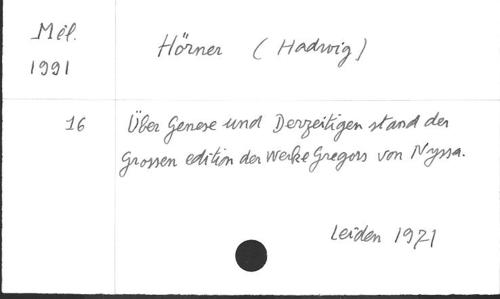 Mél.
1991
Hörner (Hadwig)
16
Über Genese und Derzeitigen stand der
Grossen edition der Werke Gregors von Nyssa.
Leiden 1971